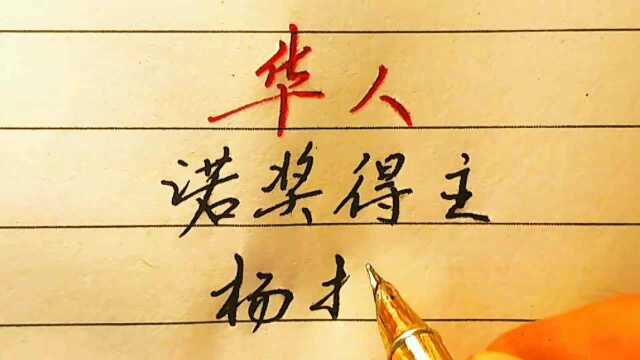 华人
诺奖得主
杨